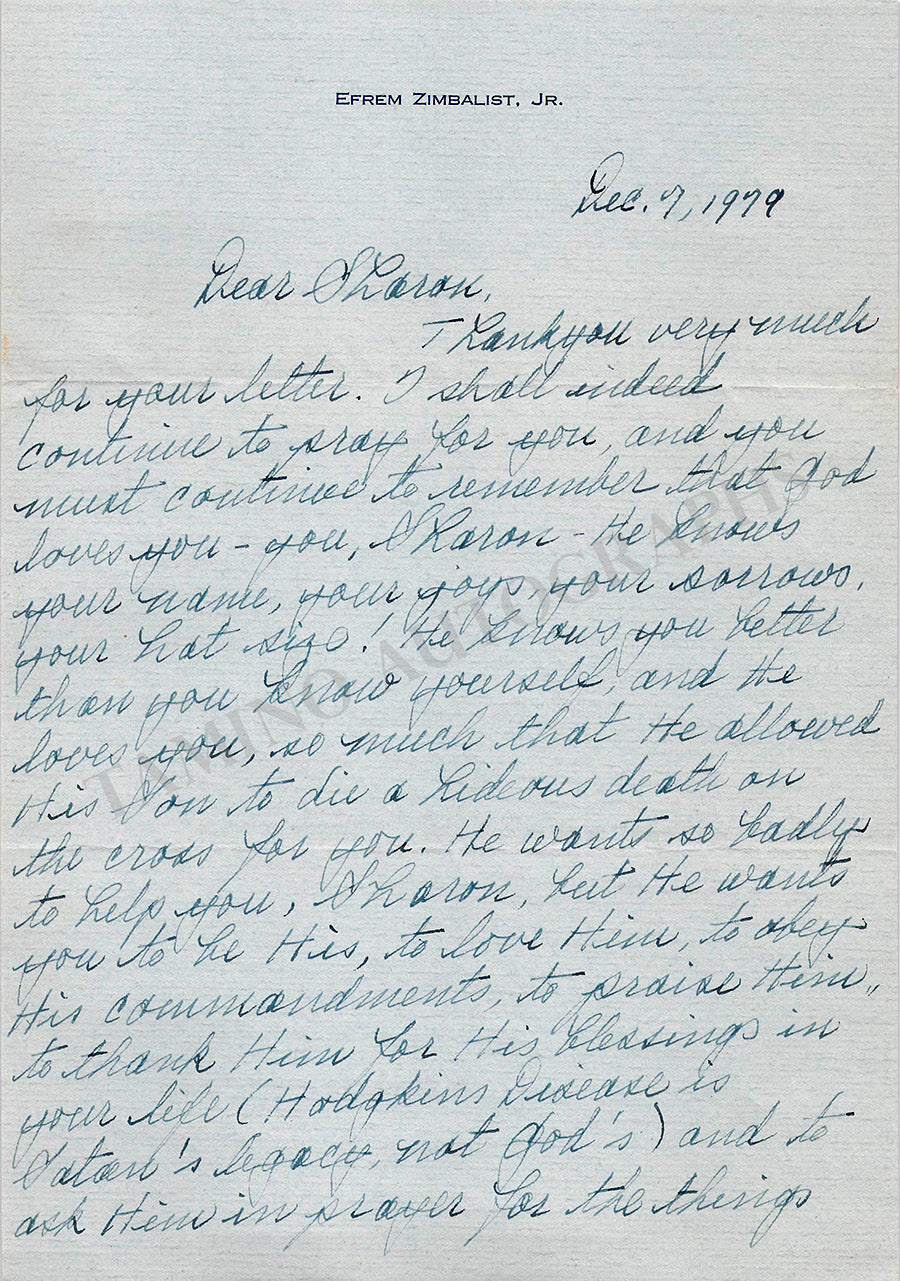 EFREM ZIMBALIST, JR.
Dec. 7, 1979
Dear Sharon,
Thank you very much
for your letter. I shall indeed
continue to pray for you, and you
must continue to remember that God
loves you - you, Sharon - He knows
your name, your joys, your sorrows,
your hat size! He knows you better
than you know yourself, and He
loves you, so much that He allowed
His Son to die a hideous death on
the cross for you. He wants so badly
to help you, Sharon, but He wants
you to be His, to love Him, to obey
His commandments, to praise Him,
to thank Him for His blessings in
your life (Hodgkins Disease is
Satan's legacy, not God's) and to
ask Him in prayer for the things
TAMINO AUTOGRAPHS